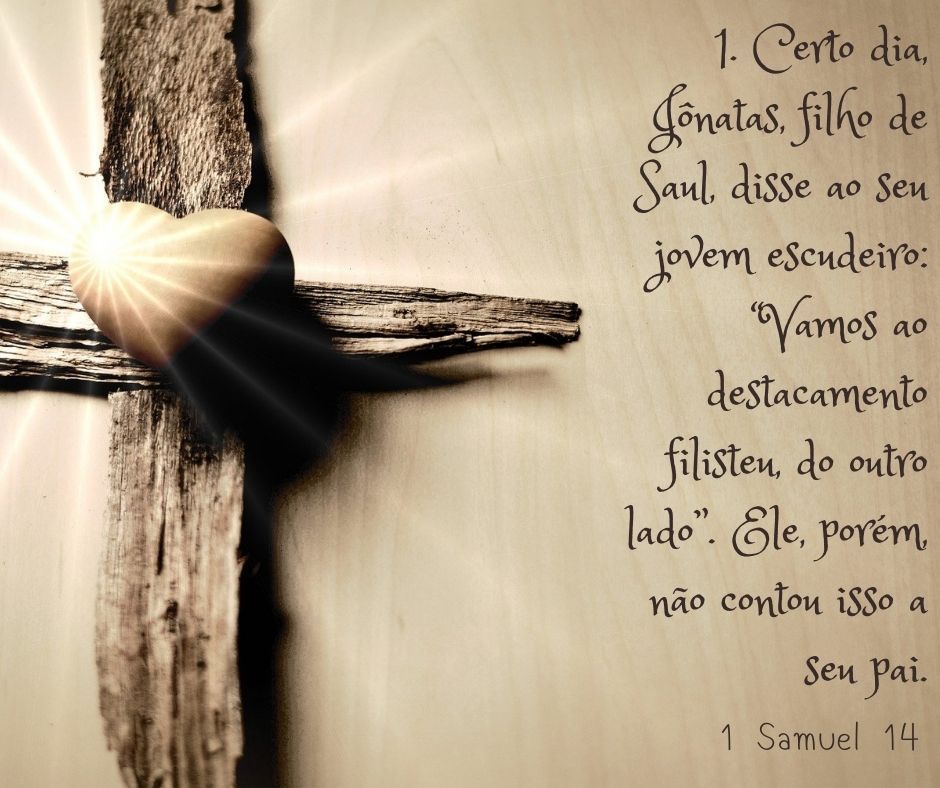 1. Certo dia,
Jônatas, filho de
Saul, disse ao seu
jovem escudeiro:
“Vamos ao
destacamento
filisteu, do outro
lado”. Ele, porém,
não contou isso a
seu pai.
1 Samuel 14